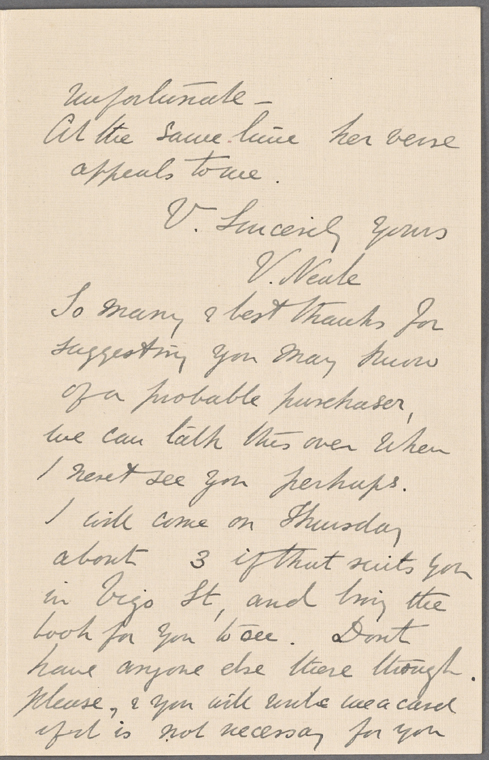 unfortunate –
At the same time her verse
appeals to me.
V. Sincerely yours
V. Neale
So many & best thanks for
suggesting you may know
of a probable purchaser,
we can talk this over when
I next see you perhaps.
I will come on Thursday
about 3 if that suits you
in Vigo St, and bring the
book for you to see. Dont
have anyone else there though
please, & you will write me a card
if it is not necessary for you